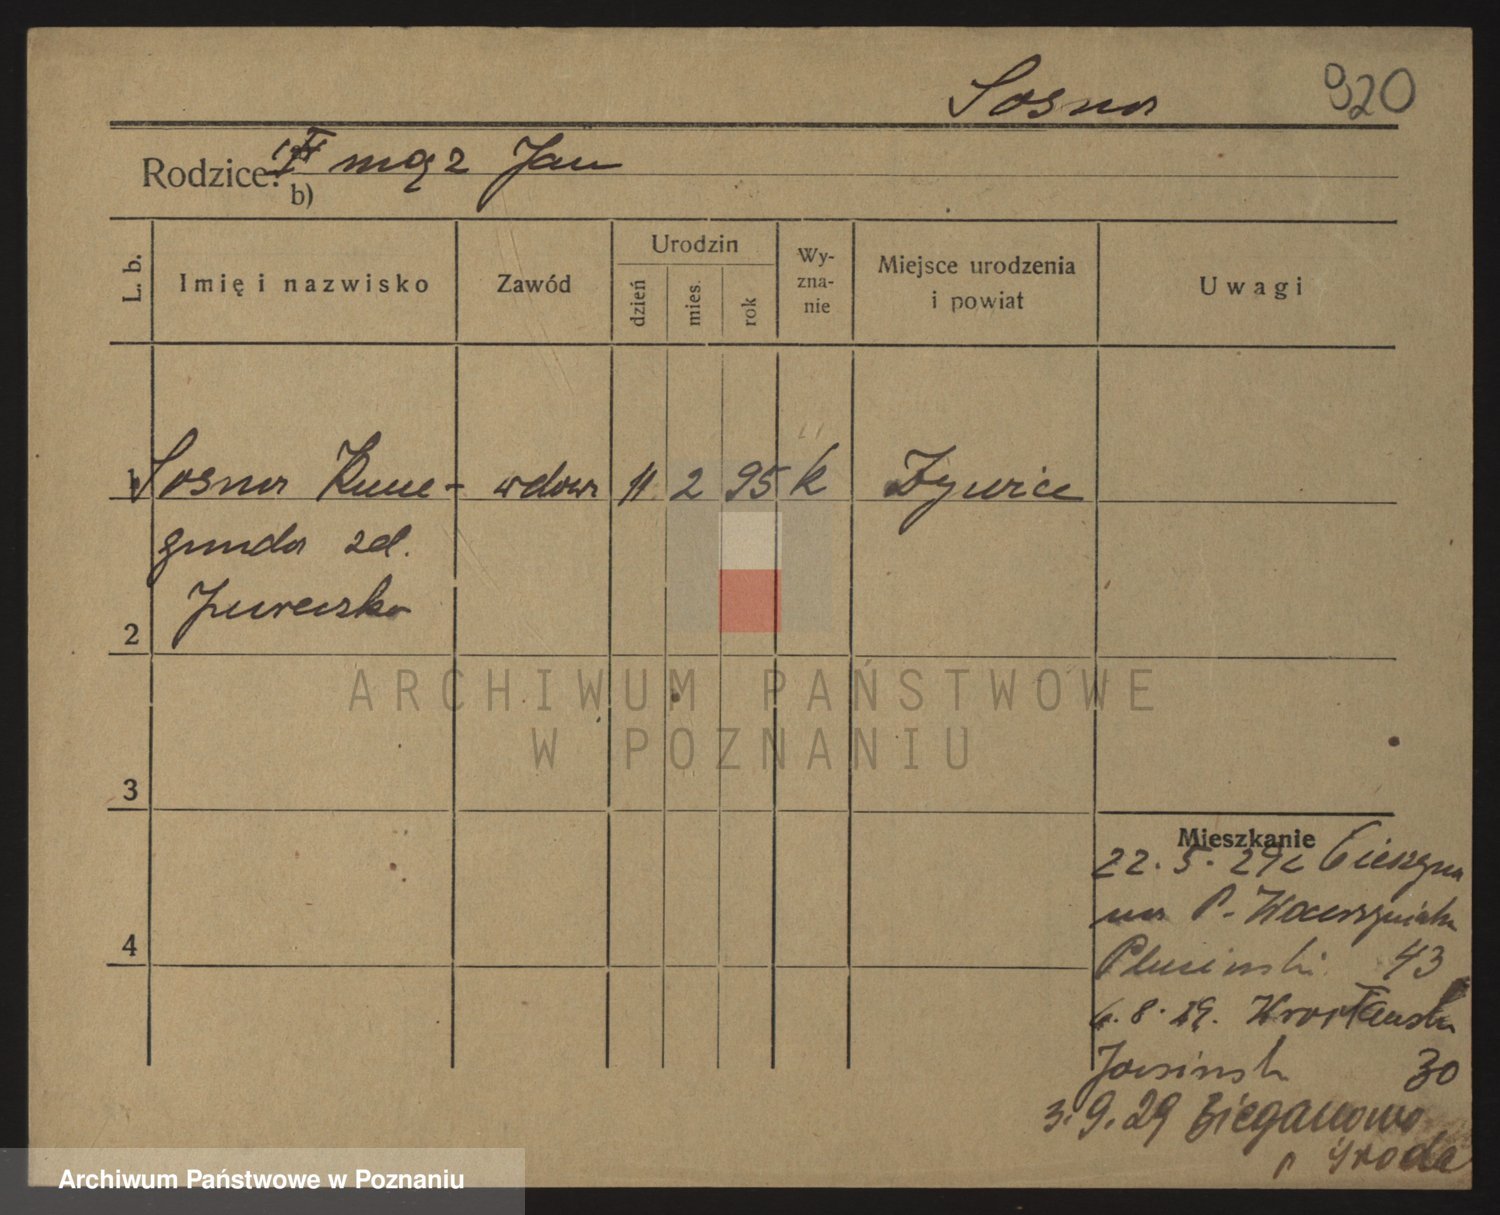 Sosna 920
Rodzice: II mąż Jan
b)
L. b.
Imię i nazwisko
Zawód
Urodzin
dzień
mies.
rok
Wy-
zna-
nie
Miejsce urodzenia
i powiat
Uwagi
1 Sosna Kune- wdowa 11 2 95 k Żywice
gunda zd.
2
ARCHIWUM PAŃSTWOWE
W POZNANIU
3
Mieszkanie
22.5.29 z Cieszyna
na P. Wawrzyniaka
43
4
6.8.29. Wrocławska
30
3.9.29 Bieganowo
p Środa
Archiwum Państwowe w Poznaniu